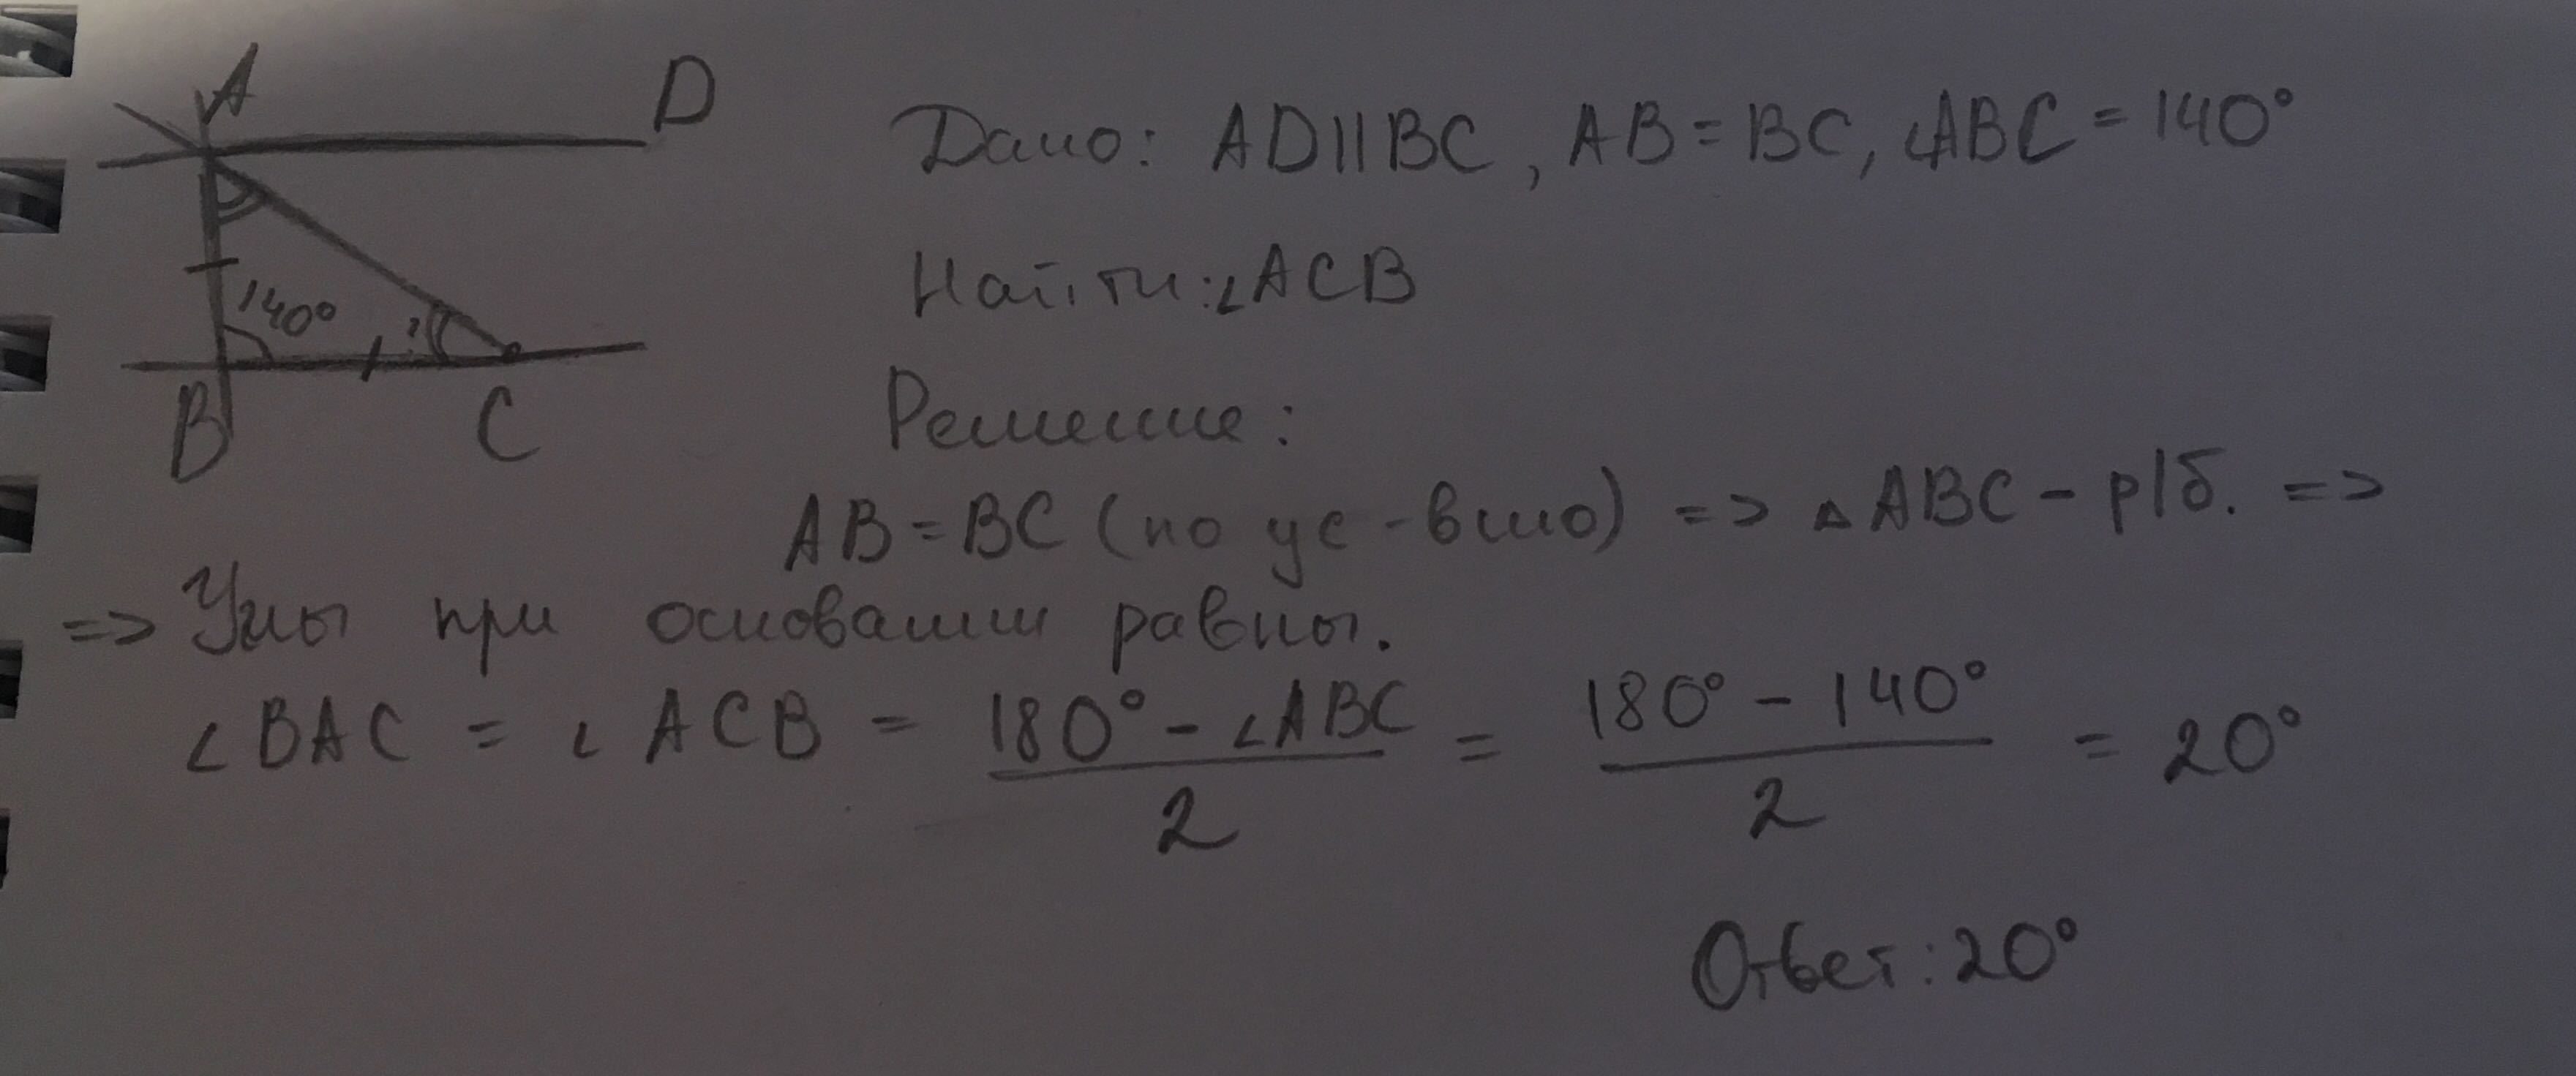 A
D
140°
?
B
C
Дано: AD||BC, AB=BC, ∠ABC=140°
Найти: ∠ACB
Решение:
AB=BC (по ус-вию) => △ABC - р/б. =>
=> Углы при основании равны.
∠BAC = ∠ACB = (180° - ∠ABC)/2 = (180° - 140°)/2 = 20°
Ответ: 20°